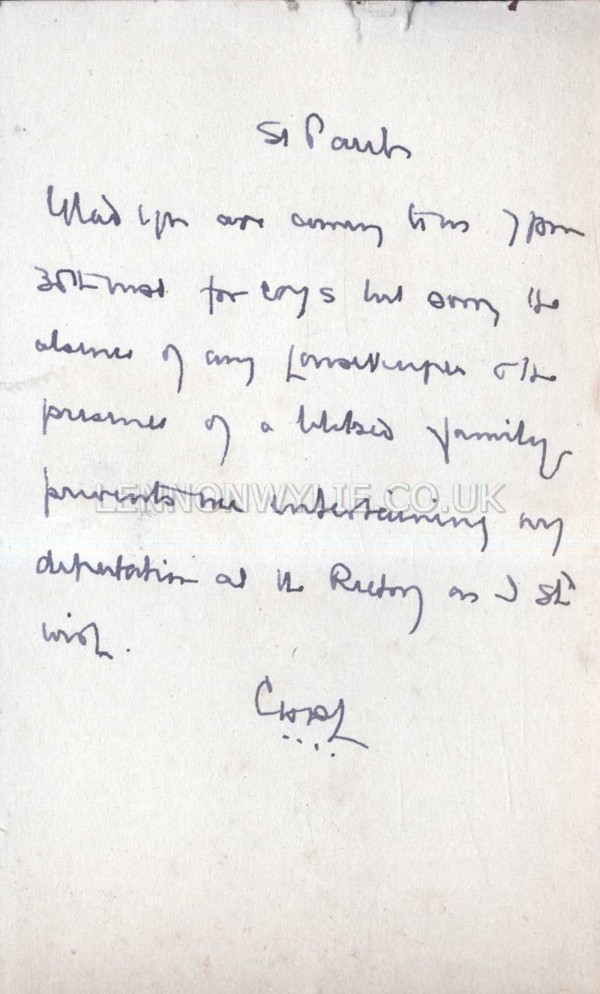 St Pauls
Glad you are coming to us 7 pm
30th inst for but sorry the
absence of any housekeeper & the
presence of a family
prevents me entertaining any
LENNONWYLIE.CO.UK
deputation at the Rectory as I shd
wish.